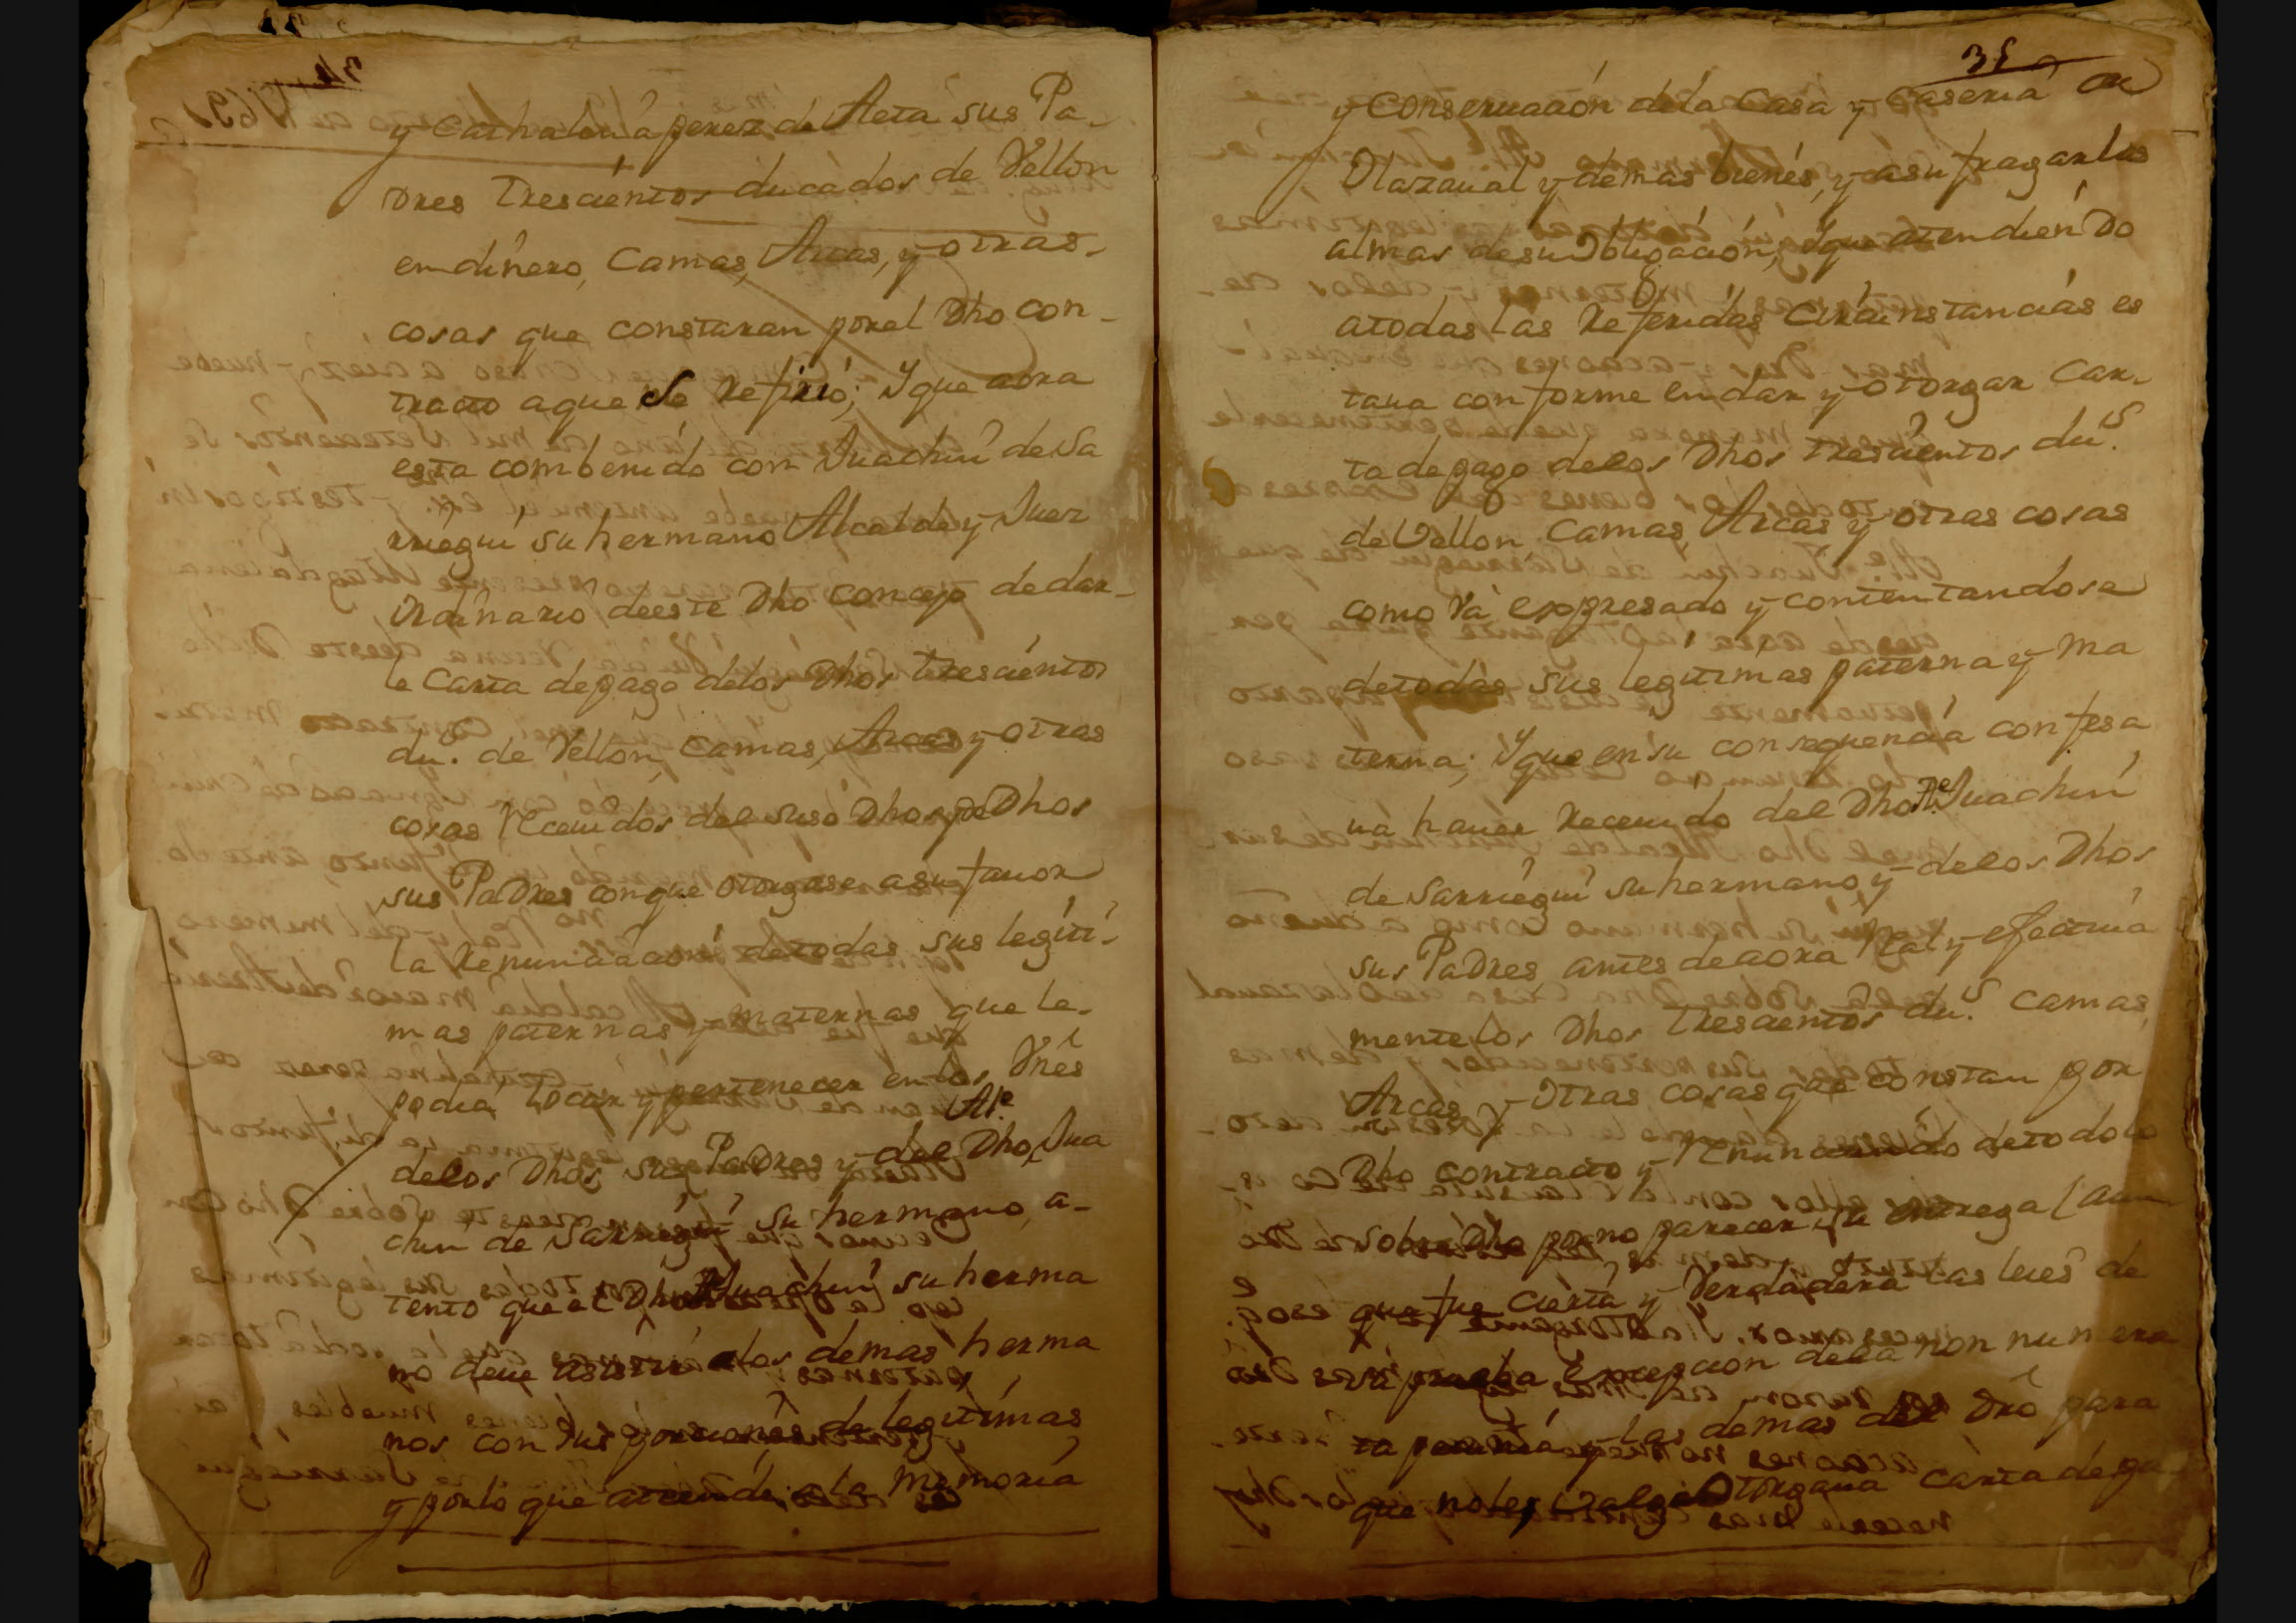 34
y Cathalina perez de Aeta sus Pa-
Dres Trescientos ducados de Vellon
en dinero, Camas, Arcas, y otras-
cosas que constaran por el Dho con-
tracto a que se Refirió; Y que aora
esta combenido con Juachin de Sa
rriegui su hermano Alcalde y Juez
Ordinario deeste Dho concejo de dar-
le Carta de pago delos Dhos trescientos
du.s de Vellon, Camas, Arcas y otras
cosas Receuidos del suso Dho y de Dhos
sus Padres con que otorgase a su fauor
la Renunciación detodas sus legiti-
mas paternas y maternas que le-
podia tocar y pertenecer en los Vnes
delos Dhos sus Padres y del Dho Al.e Jua
chin de Sarriegui su hermano, a-
tento que el Dho Al.e Juachin su herma
no deue asistir a los demas herma
nos con sus porciones de legitimas
y por lo que atiende a la memoria
35
y Conseruación dela Casa y Caseria de
Olazaual y demas bienes, y a sufragar las
almas de su Obligación, Y que atendiendo
a todas las Referidas Circunstancias es
taua conforme en dar y otorgar Car-
ta de pago delos Dhos trescientos du.s
de Vellon Camas, Arcas y otras cosas
como Va expresado y contentandose
de todas sus legitimas paterna y ma
terna; Y que en su consequencia confesa
ua hauer Receuido del Dho Al.e Juachin
de Sarriegui su hermano, y delos Dhos
sus Padres antes de aora Real y efectiua
mente los Dhos trescientos du.s Camas,
Arcas y otras cosas que constan por
Dho contracto y Renunciando de todo lo
sobre Dho por no parecer su entrega (aun
que fue cierta y Verdadera las leies de
su prueba excepcion dela non numera
ta pecunia y las demas del Dro para
que no les Valga Otorgaua Carta de pa